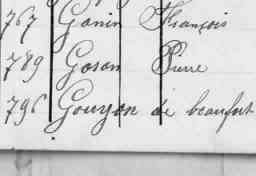 767 Gonin François
789 Goson Pierre
796 Gouyon de beaufort